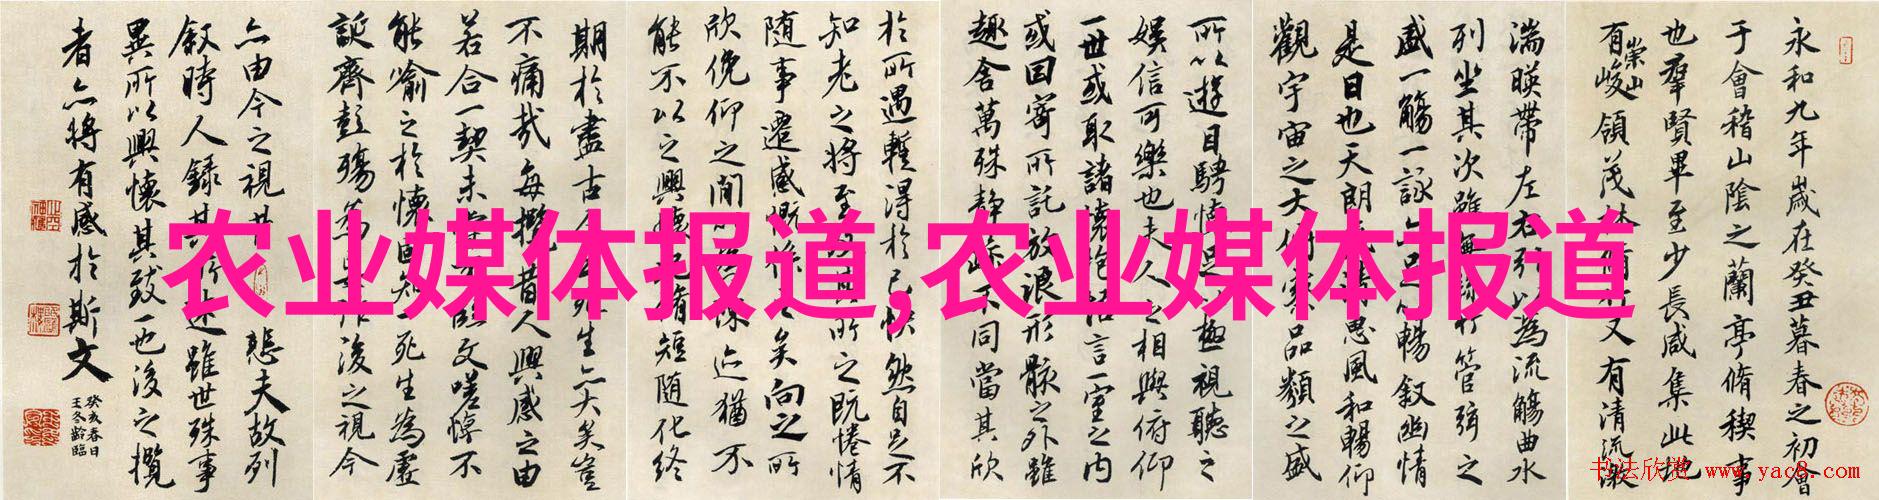 永和九年歲在癸丑暮春之初會
于會稽山陰之蘭亭脩禊事
也羣賢畢至少長咸集此地
有崇山峻領茂林脩竹又有清流激
湍暎帶左右引以為流觴曲水
列坐其次雖無絲竹管弦之
盛一觴一詠亦足以暢敘幽情
是日也天朗氣清惠風和暢仰
觀宇宙之大俯察品類之盛
所以遊目騁懷足以極視聽之
娛信可樂也夫人之相與俯仰
一世或取諸懷抱悟言一室之內
或因寄所託放浪形骸之外雖
趣舍萬殊靜躁不同當其欣
於所遇暫得於己快然自足不
知老之將至及其所之既惓情
随事遷感慨係之矣向之所
欣俛仰之間以為陳迹猶不
能不以之興懷况脩短随化終
期於盡古人云死生亦大矣豈
不痛哉每攬昔人興感之由
若合一契未嘗不臨文嗟悼不
能喻之於懷固知一死生為虛
誕齊彭殤為妄作後之視今
亦由今之視昔悲夫故列
敘時人錄其所述雖世殊事
異所以興懷其致一也後之攬
者亦將有感於斯文
癸亥春日
王冬齡臨
农业媒体报道,农业媒体报道
书法欣赏 www.yac8.com